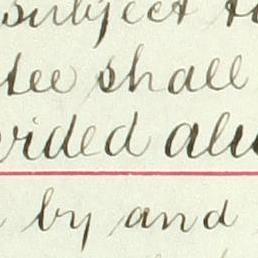 subject to
tee shall
vided alw
by and